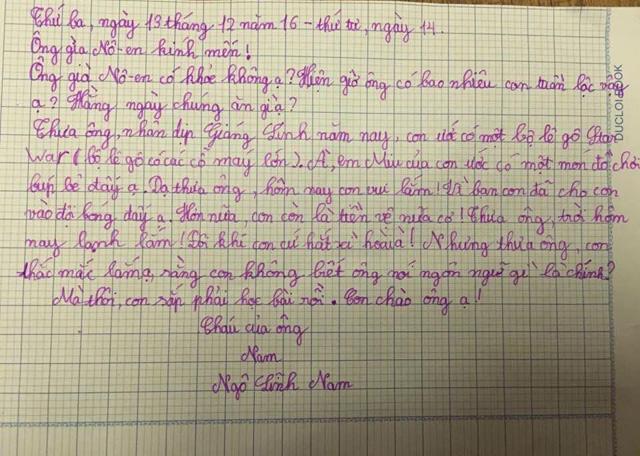 Thứ ba, ngày 13 tháng 12 năm 16 - thứ tư, ngày 14.
Ông già Nô-en kính mến!
Ông già Nô-en có khỏe không ạ? Hiện giờ ông có bao nhiêu con tuần lộc vậy
ạ? Hằng ngày chúng ăn gì ạ?
Thưa ông, nhân dịp Giáng Sinh năm nay, con ước có một bộ lê gô Star
War (bộ lê gô có các cỗ máy lớn). À, em Miu của con ước có một món đồ chơi
búp bê đấy ạ. Dạ thưa ông, hôm nay con vui lắm! Vì bạn con đã cho con
vào đội bóng đấy ạ. Hơn nữa, con còn là tiền vệ nữa cơ! Thưa ông, trời hôm
nay lạnh lắm! Đôi khi con cứ hắt xì hoài à! Nhưng thưa ông, con
thắc mắc lắm ạ, rằng con không biết ông nói ngôn ngữ gì là chính?
Mà thôi, con sắp phải học bài rồi. Con chào ông ạ!
Cháu của ông
Nam
Ngô Lĩnh Nam
DUCLOI BOOK